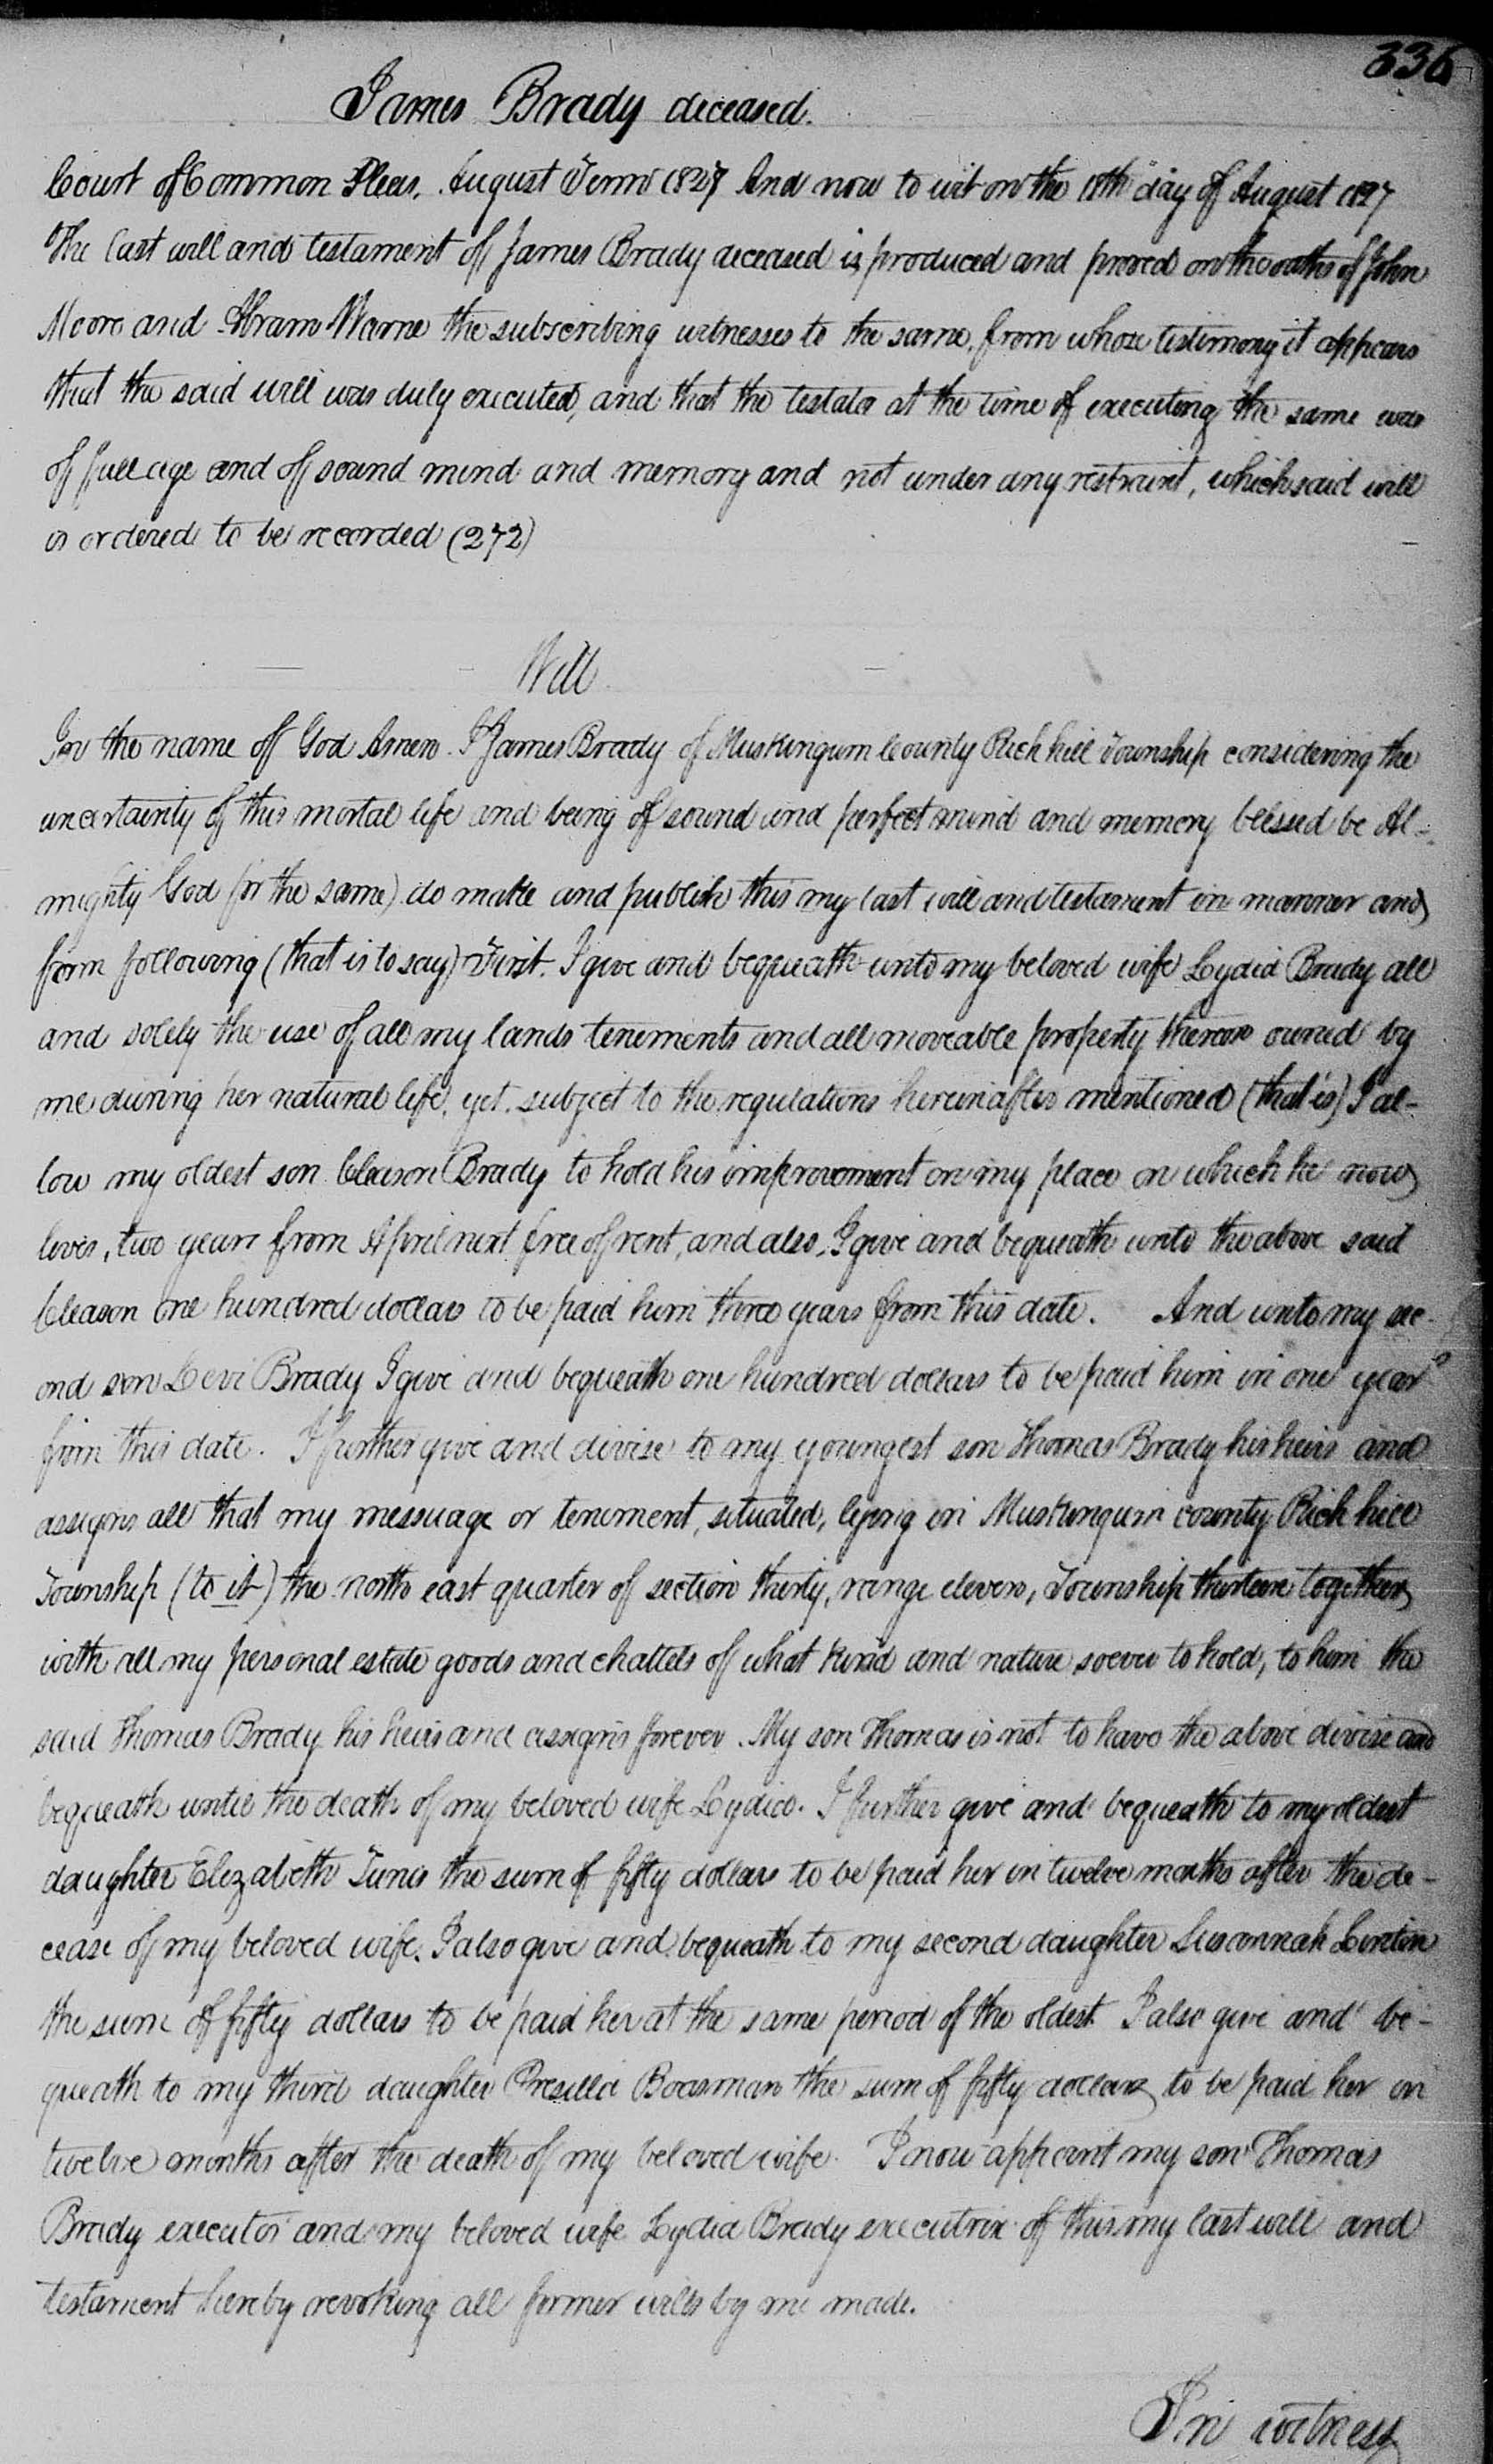 336
James Brady deceased.
Court of Common Pleas. August Term 1827 And now to wit on the 18th day of August 1827
The last will and testament of James Brady deceased is produced and proved on the oaths of John
Moore and Abram Warne the subscribing witnesses to the same, from whose testimony it appears
that the said will was duly executed, and that the testator at the time of executing the same was
of full age and of sound mind and memory and not under any restraint, which said will
is ordered to be recorded (272)
Will
In the name of God Amen. I James Brady of Muskingum County Rich hill Township considering the
uncertainty of this mortal life and being of sound and perfect mind and memory blessed be Al-
mighty God for the same) do make and publish this my last will and testament in manner and
form following (that is to say) First. I give and bequeath unto my beloved wife Lydia Brady all
and solely the use of all my lands tenements and all moveable property thereon owned by
me during her natural life, yet subject to the regulations hereinafter mentioned (that is) I al-
low my oldest son Cleason Brady to hold his improvement on my place on which he now
lives, two years from April next free of rent, and also, I give and bequeath unto the above said
Cleason one hundred dollars to be paid him three years from this date. And unto my sec-
ond son Levi Brady I give and bequeath one hundred dollars to be paid him in one year
from this date. I further give and divise to my youngest son Thomas Brady his heirs and
assigns all that my messuage or teniment, situated, lying in Muskingum county Rich hill
Township (to it) the north east quarter of section thirty, range eleven, Township thirteen together
with all my personal estate goods and chattels of what kind and nature soever to hold, to him the
said Thomas Brady his heirs and assigns forever. My son Thomas is not to have the above divise and
bequeath until the death of my beloved wife Lydia. I further give and bequeath to my oldest
daughter Elizabeth Tunis the sum of fifty dollars to be paid her in twelve months after the de-
cease of my beloved wife. I also give and bequeath to my second daughter Susannah Linton
the sum of fifty dollars to be paid her at the same period of the oldest I also give and be-
queath to my third daughter Presilla Boasman the sum of fifty dollars to be paid her in
twelve months after the death of my beloved wife. I now appoint my son Thomas
Brady executor and my beloved wife Lydia Brady executrix of this my last will and
testament hereby revoking all former wills by me made.
In witness